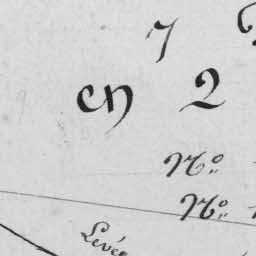 7
en 2
N.º
N.º
Levée